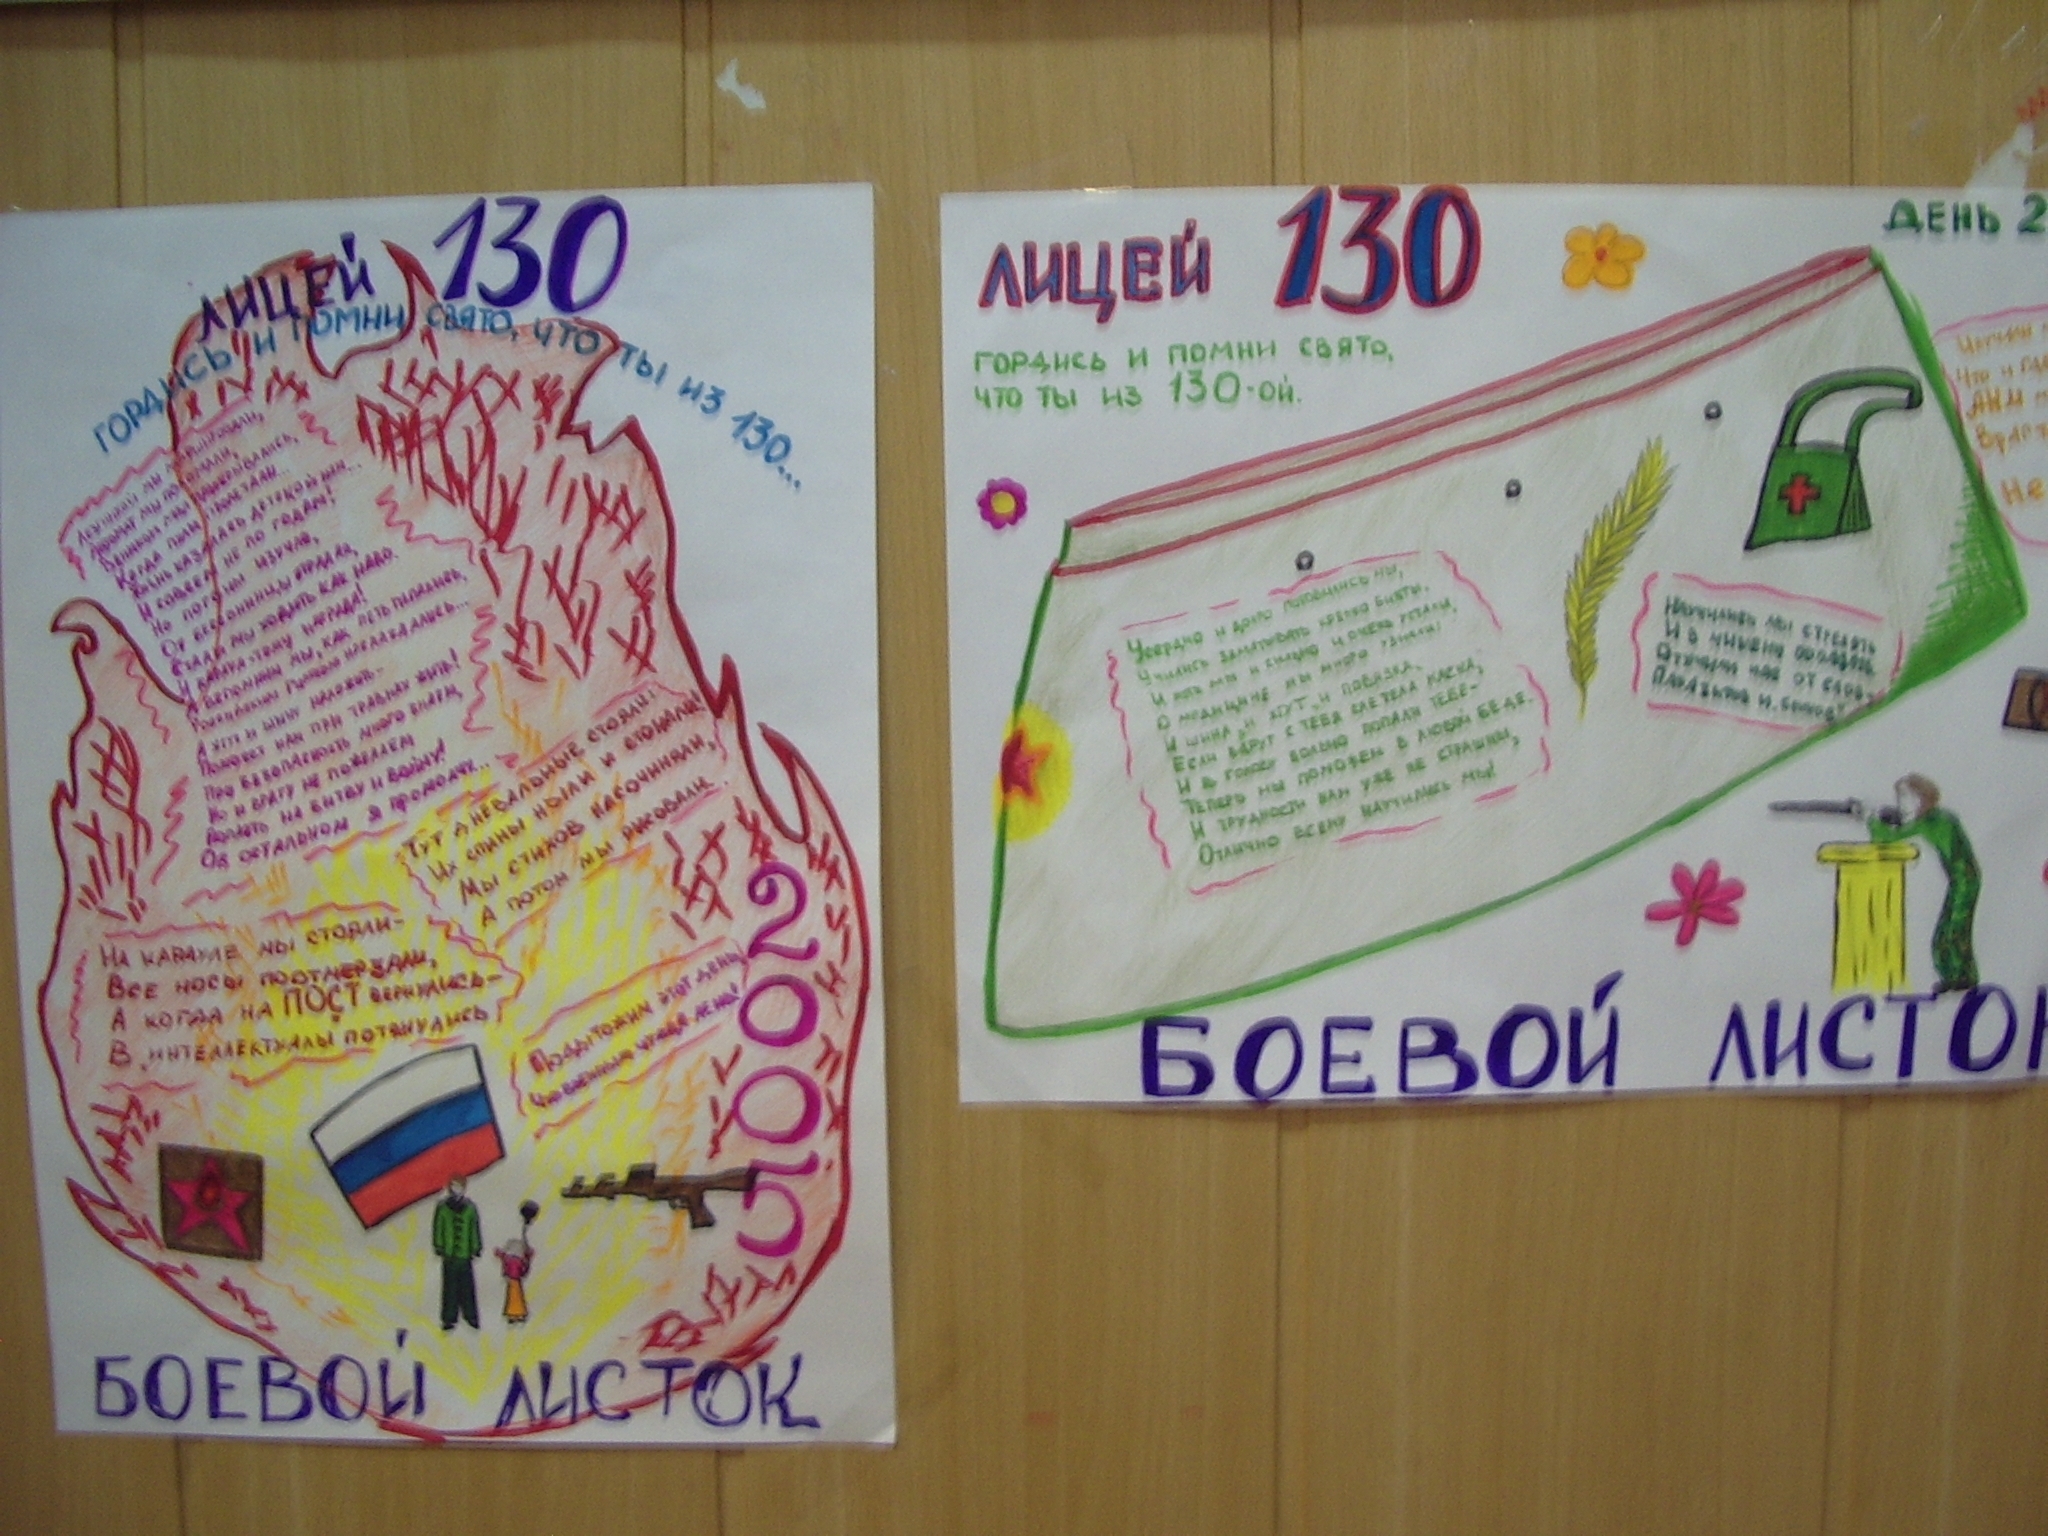 ЛИЦЕЙ 130
ГОРДИСЬ И ПОМНИ СВЯТО, ЧТО ТЫ ИЗ 130...
Когда
Жизнь казалась детской нам...
И совсем не по годам!
Но погоны изучив,
От бессонницы страдая,
Стали мы ходить как надо.
И кавказ-тому награда!
А вспомним мы, как петь пытались,
Российским гимном наслаждались...
А жгут и шину наложить-
Поможет нам при травмах жить!
Про безопасность много знаем,
Но и врагу не пожелаем
Попасть на битву и войну!
Об остальном я промолчу...
Тут дневальные стояли:
Их спины ныли и стонали!
Мы стихов насочиняли,
А потом мы рисовали...
На карауле мы стояли-
Все носы поотмерзали,
А когда на ПОСТ вернулись-
В интеллектуалы потянулись!
Подытожим этот день
2005
БОЕВОЙ ЛИСТОК
ЛИЦЕЙ 130
ДЕНЬ 2
ГОРДИСЬ И ПОМНИ СВЯТО,
ЧТО ТЫ ИЗ 130-ОЙ.
Усердно и долго готовились мы,
Учились заматывать крепко бинты.
И хоть мы и сильно и очень устали,
О медицине мы много узнали!
И шина, и жгут, и повязка.
Если вдруг с тебя слетела каска,
И в голову больно попали тебе-
Теперь мы поможем в любой беде.
И трудности нам уже не страшны,
Отлично всему научились мы!
Научились мы стрелять
И в мишени попадать.
Отучили нас от слов-
БОЕВОЙ ЛИСТОК